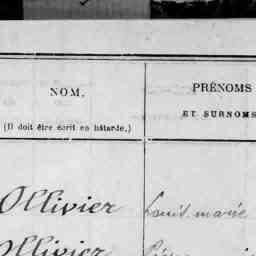 NOM.
PRÉNOMS
ET SURNOMS
(Il doit être écrit en bâtarde.)
Ollivier Louis marie
Ollivier